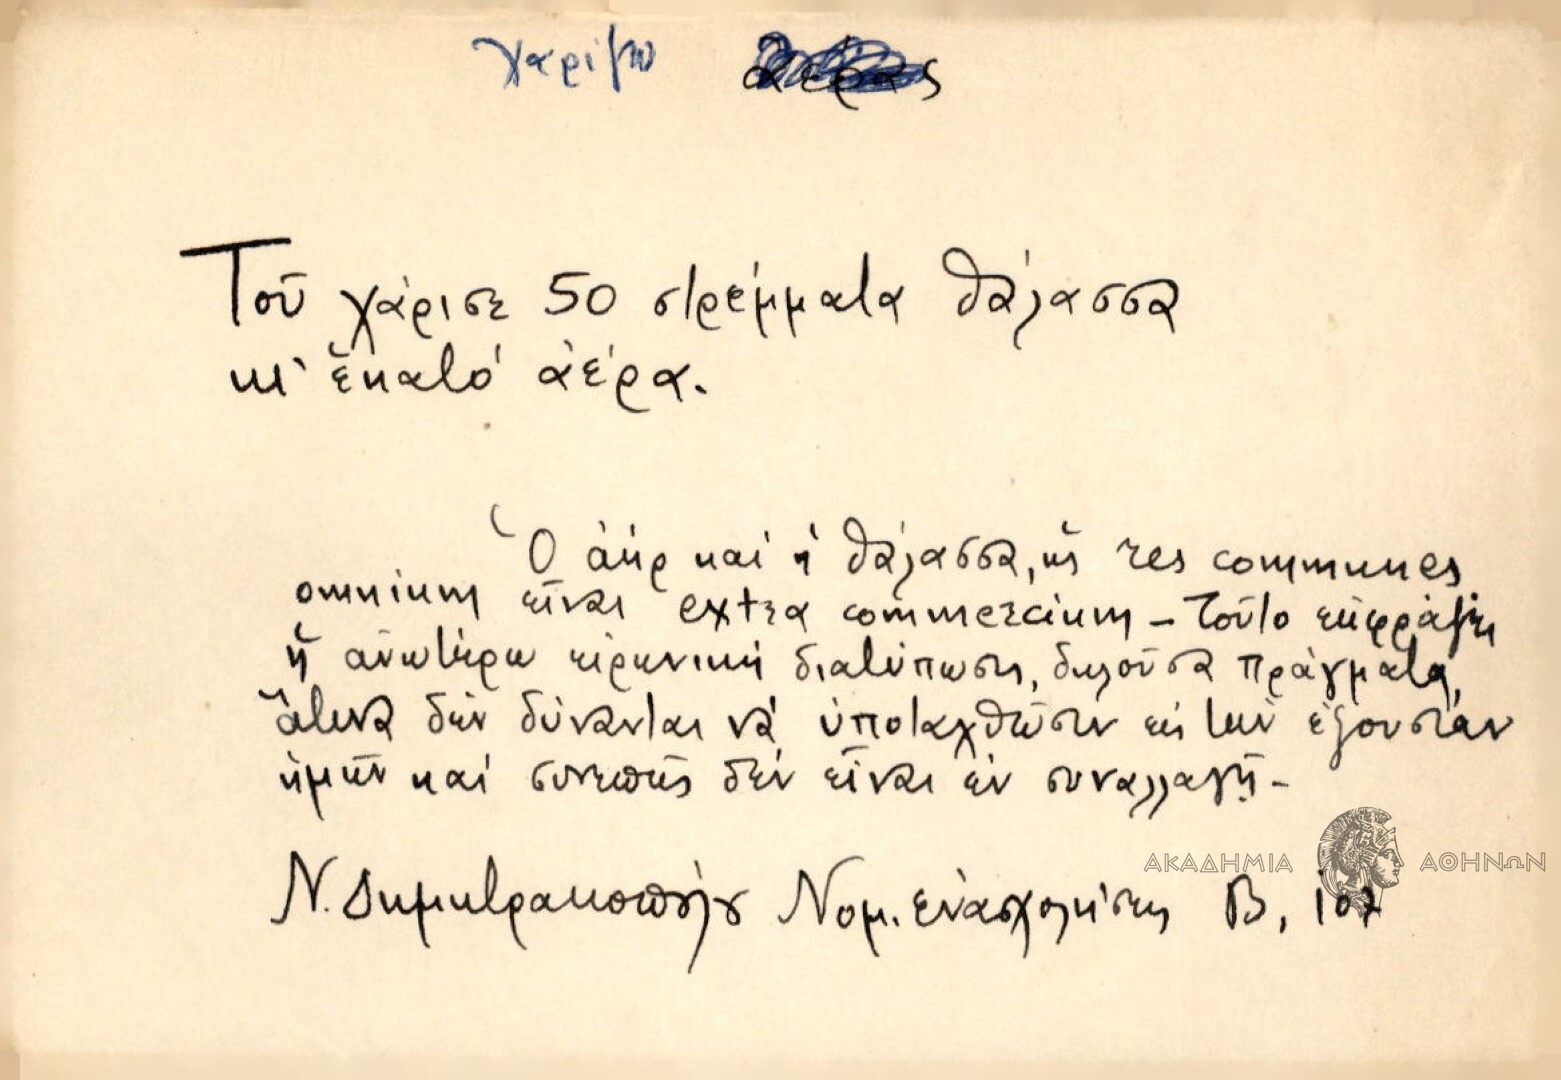 χαρίζω ἀέρας
Τοῦ χάρισε 50 στρέμματα θάλασσα
κι' ἑκατό ἀέρα.
Ὁ ἀήρ καί ἡ θάλασσα, ὡς res communes
omnium εἶναι extra commercium – Τοῦτο ἐκφράζει
ἡ ἀνωτέρω εἰρωνική διατύπωσις, δηλοῦσα πράγματα,
ἅτινα δέν δύνανται νά ὑποταχθῶσιν εἰς τήν ἐξουσίαν
ἡμῶν καί συνεπῶς δέν εἶναι ἐν συναλλαγῇ –
Ν. Δημητρακοπούλου Νομ. ἐνασχολήσεις Β, 107
ΑΚΑΔΗΜΙΑ ΑΘΗΝΩΝ